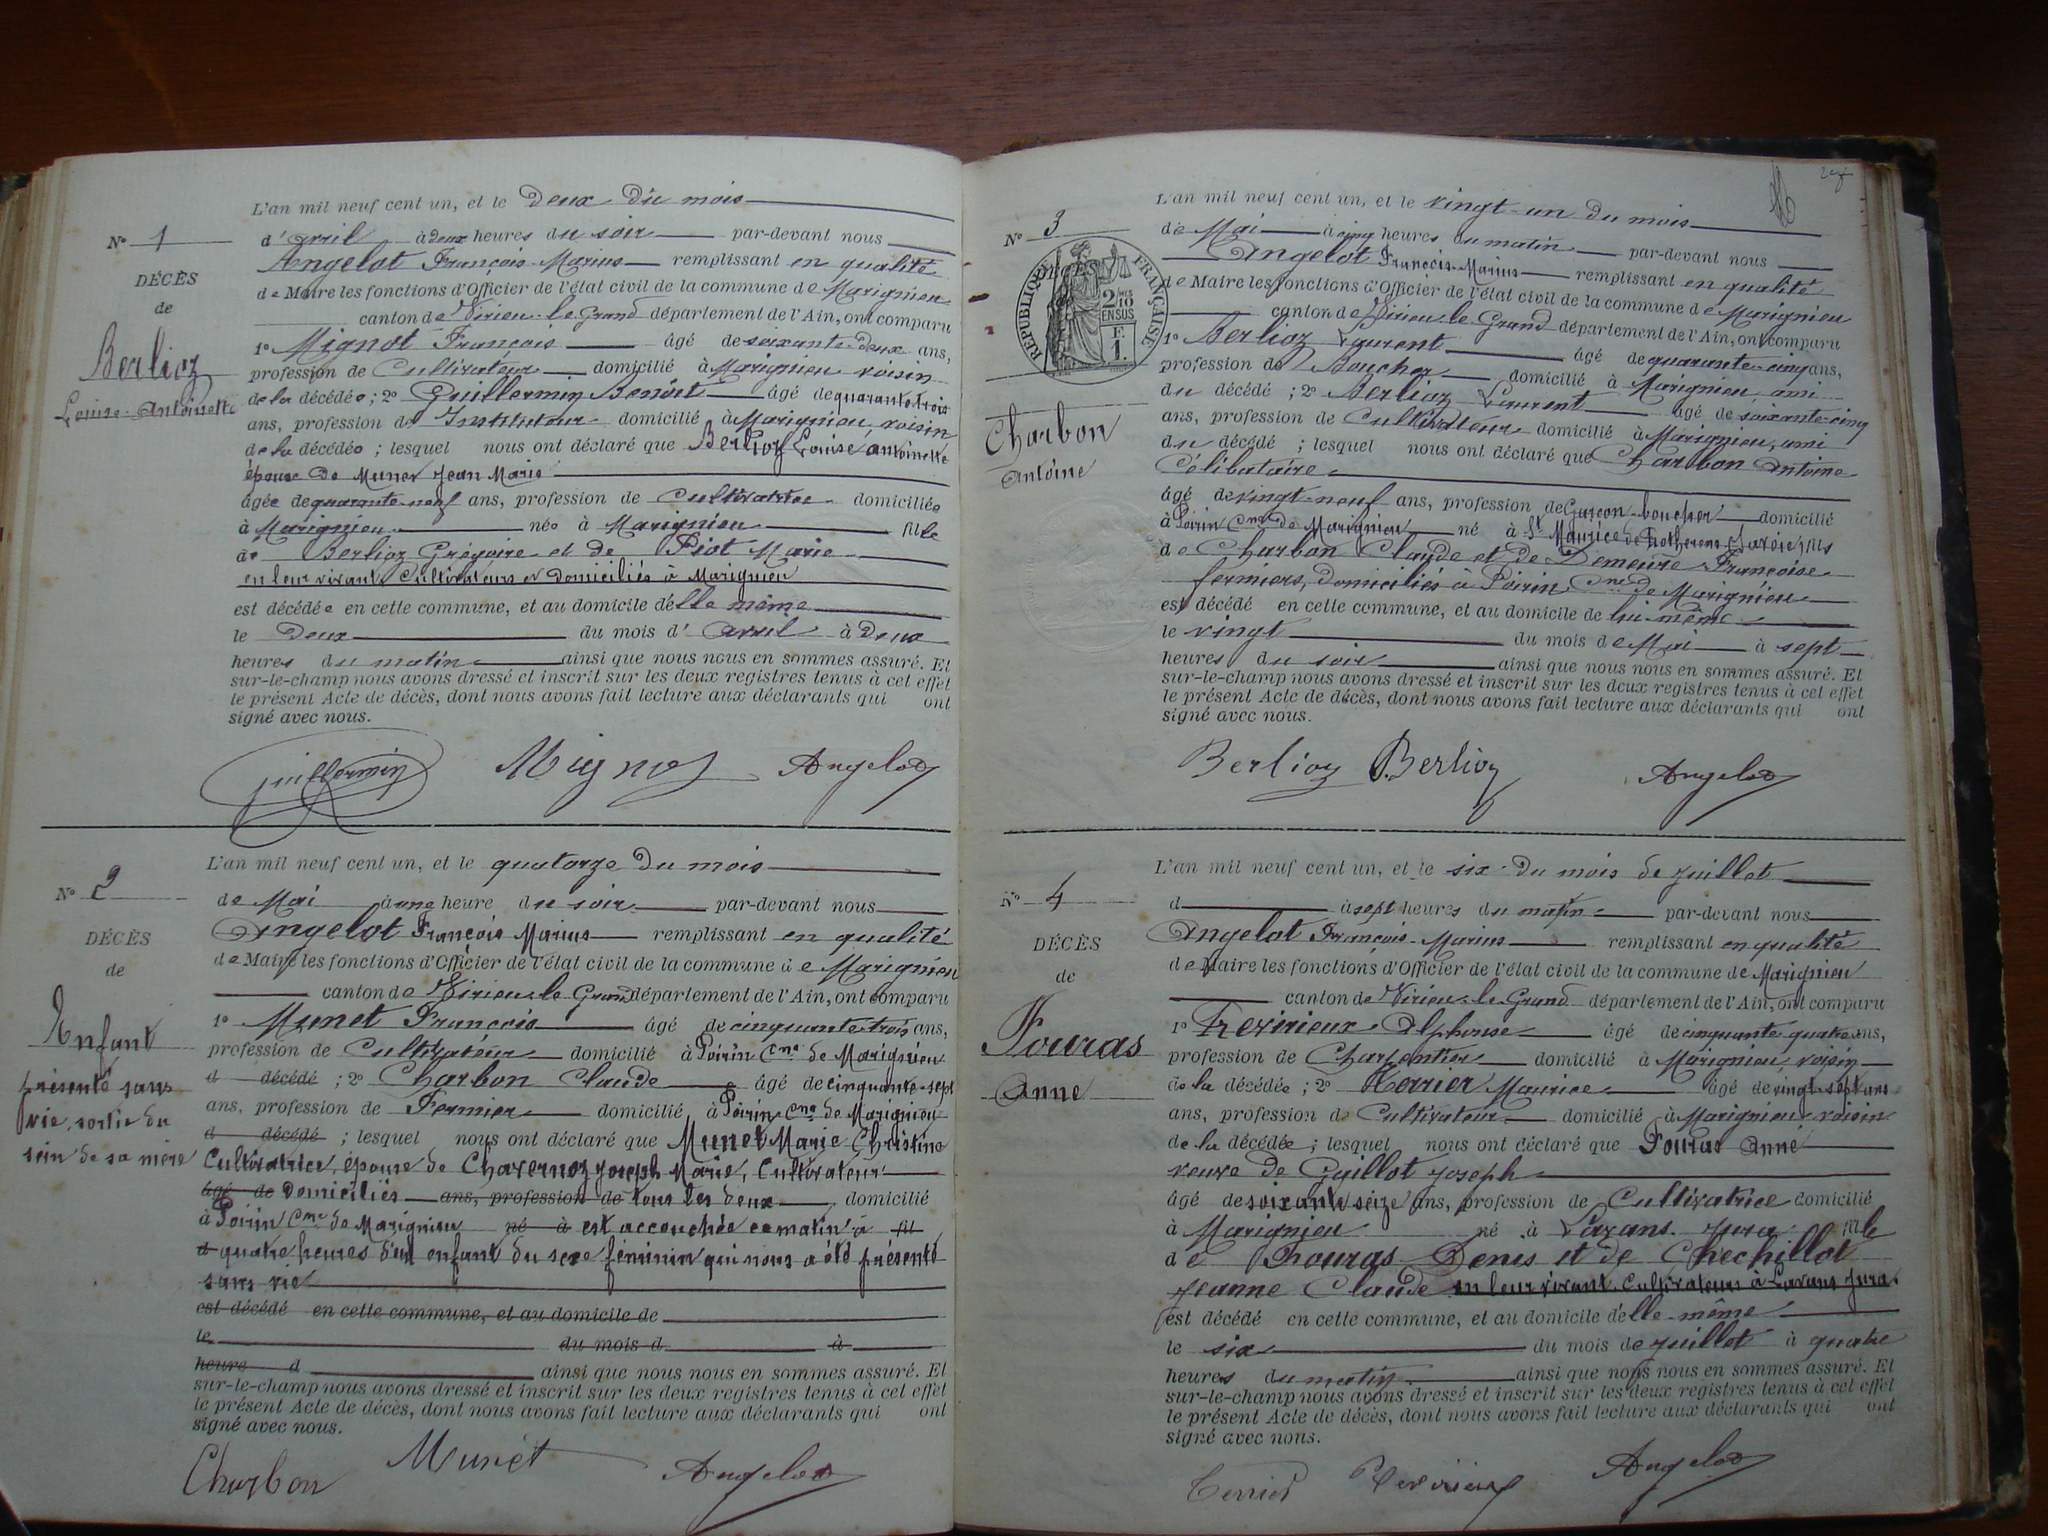 L'an mil neuf cent un, et le deux du mois
N° 1
d'avril à deux heures du soir par-devant nous
Angelot François-Marius remplissant en qualité
DÉCÈS
de Maire les fonctions d'Officier de l'état civil de la commune de Marignieu
de
canton de Virieu-le-Grand département de l'Ain, ont comparu
1° Mignot François âgé de soixante-deux ans,
Berlioz
profession de Cultivateur domicilié à Marignieu voisin
de la décédée ; 2° Guillermin Benoît âgé de quarante-trois
Louise-Antoinette
ans, profession de Instituteur domicilié à Marignieu, voisin
de la décédée ; lesquel nous ont déclaré que Berlioz Louise Antoinette
épouse de Munet Jean Marie
âgée de quarante-neuf ans, profession de Cultivatrice domiciliée
à Marignieu née à Marignieu fille
de Berlioz Grégoire et de Piot Marie
en leur vivant Cultivateurs et domiciliés à Marignieu
est décédée en cette commune, et au domicile d'elle même
le deux du mois d'avril à deux
heures du matin ainsi que nous nous en sommes assuré. Et
sur-le-champ nous avons dressé et inscrit sur les deux registres tenus à cet effet
le présent Acte de décès, dont nous avons fait lecture aux déclarants qui ont
signé avec nous.
Guillermin Mignot Angelot
L'an mil neuf cent un, et le quatorze du mois
N° 2
de Mai à une heure du soir par-devant nous
Angelot François Marius remplissant en qualité
DÉCÈS
de Maire les fonctions d'Officier de l'état civil de la commune de Marignieu
de
canton de Virieu-le-Grand département de l'Ain, ont comparu
Enfant
1° Munet François âgé de cinquante-trois ans,
profession de Cultivateur domicilié à Poirin Cne de Marignieu
présenté sans
d décédé ; 2° Charbon Claude âgé de cinquante-sept
vie, sortie du
ans, profession de Fermier domicilié à Poirin Cne de Marignieu
d décédé ; lesquel nous ont déclaré que Munet Marie Christine
sein de sa mère
Cultivatrice, épouse de Chavernoz Joseph Marie, Cultivateur
âgé de domiciliés ans, profession de tous les deux domicilié
à Poirin Cne de Marignieu né à est accouchée ce matin à fil
d quatre heures d'un enfant du sexe féminin qui nous a été présenté
sans vie
est décédé en cette commune, et au domicile de
le du mois d à
heure d ainsi que nous nous en sommes assuré. Et
sur-le-champ nous avons dressé et inscrit sur les deux registres tenus à cet effet
le présent Acte de décès, dont nous avons fait lecture aux déclarants qui ont
signé avec nous.
Charbon Munet Angelot
L'an mil neuf cent un, et le vingt-un du mois
N° 3
de Mai à cinq heures du matin par-devant nous
Angelot François-Marius remplissant en qualité
DÉCÈS
RÉPUBLIQUE FRANÇAISE
2/10 EN SUS
F. 1.
de Maire les fonctions d'Officier de l'état civil de la commune de Marignieu
canton de Virieu-le-Grand département de l'Ain, ont comparu
1° Berlioz Laurent âgé de quarante-cinq ans,
profession de Boucher domicilié à Marignieu, ami
du décédé ; 2° Berlioz Laurent âgé de soixante-cinq
Charbon
ans, profession de Cultivateur domicilié à Marignieu, ami
du décédé ; lesquel nous ont déclaré que Charbon Antoine
Antoine
Célibataire
âgé de vingt-neuf ans, profession de Garçon-boucher domicilié
à Poirin Cne de Marignieu né à St Maurice de Rotherens (Savoie) fils
de Charbon Claude et de Demeure Françoise
fermiers, domiciliés à Poirin Cne de Marignieu
est décédé en cette commune, et au domicile de lui-même
le vingt du mois de Mai à sept
heures du soir ainsi que nous nous en sommes assuré. Et
sur-le-champ nous avons dressé et inscrit sur les deux registres tenus à cet effet
le présent Acte de décès, dont nous avons fait lecture aux déclarants qui ont
signé avec nous.
Berlioz Berlioz Angelot
L'an mil neuf cent un, et le six du mois de juillet
N° 4
d à sept heures du matin par-devant nous
Angelot François-Marius remplissant en qualité
DÉCÈS
de Maire les fonctions d'Officier de l'état civil de la commune de Marignieu
de
canton de Virieu-le-Grand département de l'Ain, ont comparu
Fouras
1° Trévirieux Alphonse âgé de cinquante quatre ans,
profession de Charpentier domicilié à Marignieu, voisin
Anne
de la décédée ; 2° Terrier Maurice âgé de vingt-sept ans
ans, profession de Cultivateur domicilié à Marignieu voisin
de la décédée ; lesquel nous ont déclaré que Fouras Anne
veuve de Guillot Joseph
âgé de soixante seize ans, profession de Cultivatrice domicilié
à Marignieu né à Lavans Jura fille
de Fouras Denis et de Chechillot
Jeanne Claude en leur vivant Cultivateurs à Lavans Jura
est décédé en cette commune, et au domicile d'elle-même
le six du mois de juillet à quatre
heures du matin ainsi que nous nous en sommes assuré. Et
sur-le-champ nous avons dressé et inscrit sur les deux registres tenus à cet effet
le présent Acte de décès, dont nous avons fait lecture aux déclarants qui ont
signé avec nous.
Terrier Trévirieux Angelot